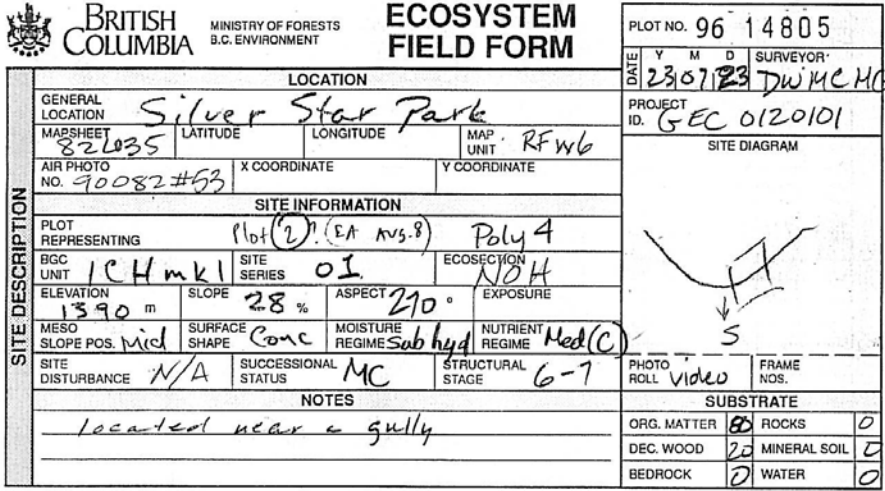 BRITISH COLUMBIA
MINISTRY OF FORESTS
B.C. ENVIRONMENT
ECOSYSTEM FIELD FORM
PLOT NO. 96 14805
DATE Y M D 23 07 23 SURVEYOR DW MC MG
PROJECT ID. GEC 0120101
SITE DESCRIPTION
LOCATION
GENERAL LOCATION Silver Star Park
MAPSHEET 82L035 LATITUDE LONGITUDE MAP UNIT RFw6
AIR PHOTO NO. 90082 #53 X COORDINATE Y COORDINATE
SITE INFORMATION
PLOT REPRESENTING Plot 2? (EA AUG. 8) Poly 4
BGC UNIT ICHmk1 SITE SERIES 01 ECOSECTION NOH
ELEVATION 1390 m SLOPE 28 % ASPECT 270 ° EXPOSURE
MESO SLOPE POS. Mid SURFACE SHAPE Conc MOISTURE REGIME Subhyd NUTRIENT REGIME Med (C)
SITE DISTURBANCE N/A SUCCESSIONAL STATUS MC STRUCTURAL STAGE 6-7
NOTES
located near a gully
SITE DIAGRAM
S
PHOTO ROLL video FRAME NOS.
SUBSTRATE
ORG. MATTER 80 ROCKS 0
DEC. WOOD 20 MINERAL SOIL 0
BEDROCK 0 WATER 0